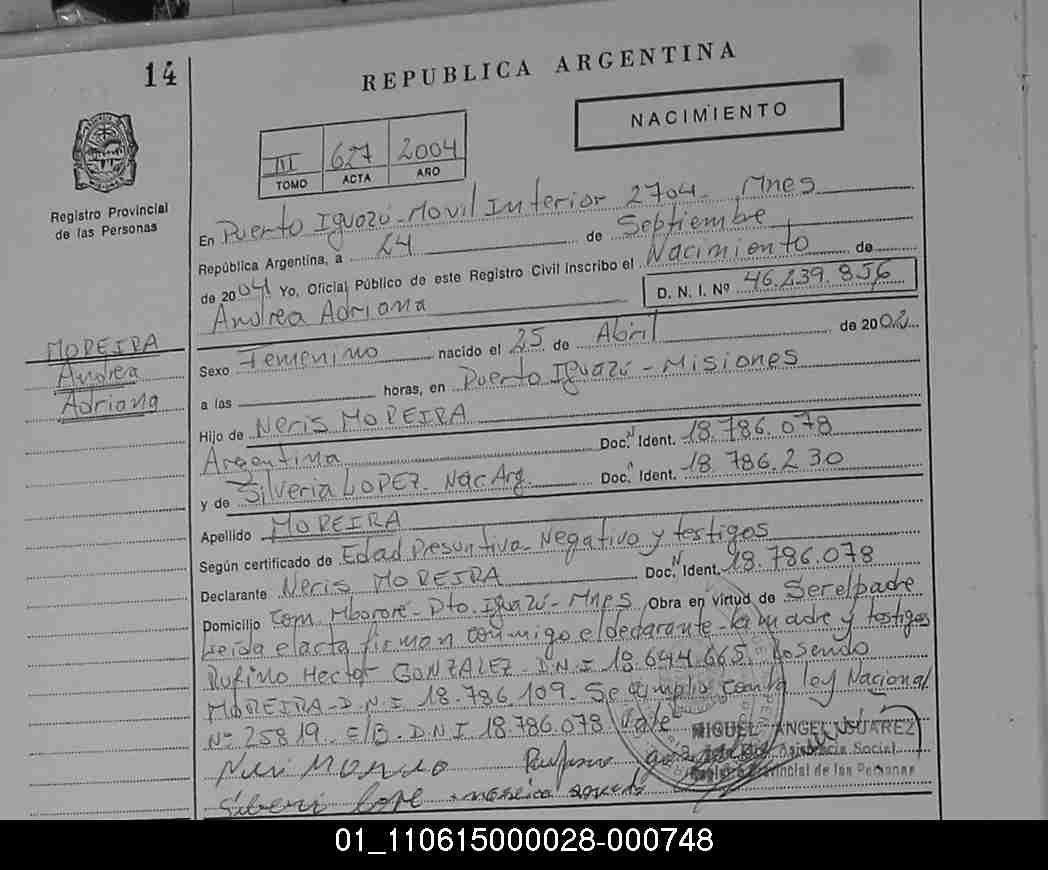 14
REPUBLICA ARGENTINA
NACIMIENTO
III 627 2004
TOMO ACTA AÑO
Registro Provincial
de las Personas
En Puerto Iguazú-Movil Interior 2704- Mnes
República Argentina, a 24 de Septiembre
de 2004 Yo, Oficial Público de este Registro Civil inscribo el Nacimiento de
Andrea Adriana D. N. I. Nº 46.239.856
MOREIRA
Andrea
Adriana
Sexo Femenino nacido el 25 de Abril de 2002
a las horas, en Puerto Iguazú - Misiones
Hijo de Neris MOREIRA
Argentina Doc. Ident. 18.786.078
y de Silveria LOPEZ. Nac Arg. Doc. Ident. 18.786.230
Apellido MOREIRA
Según certificado de Edad Presuntiva- Negativo y testigos
Declarante Neris MOREIRA Doc. Ident. 18.786.078
Domicilio Com. Mbororé- Pto. Iguazú- Mnes Obra en virtud de Ser el padre
Leida el acta firman conmigo el declarante- la madre y testigos
Rufino Hector GONZALEZ- D.N.I 18.644.665. Rosendo
MOREIRA- D.N.I. 18.786.109. Se cumplio con la ley Nacional
Nº 25819. E/B. D N I. 18.786.078 Vale
MIGUEL ANGEL SUAREZ
Asistencia Social
Registro Provincial de las Personas
01_110615000028-000748